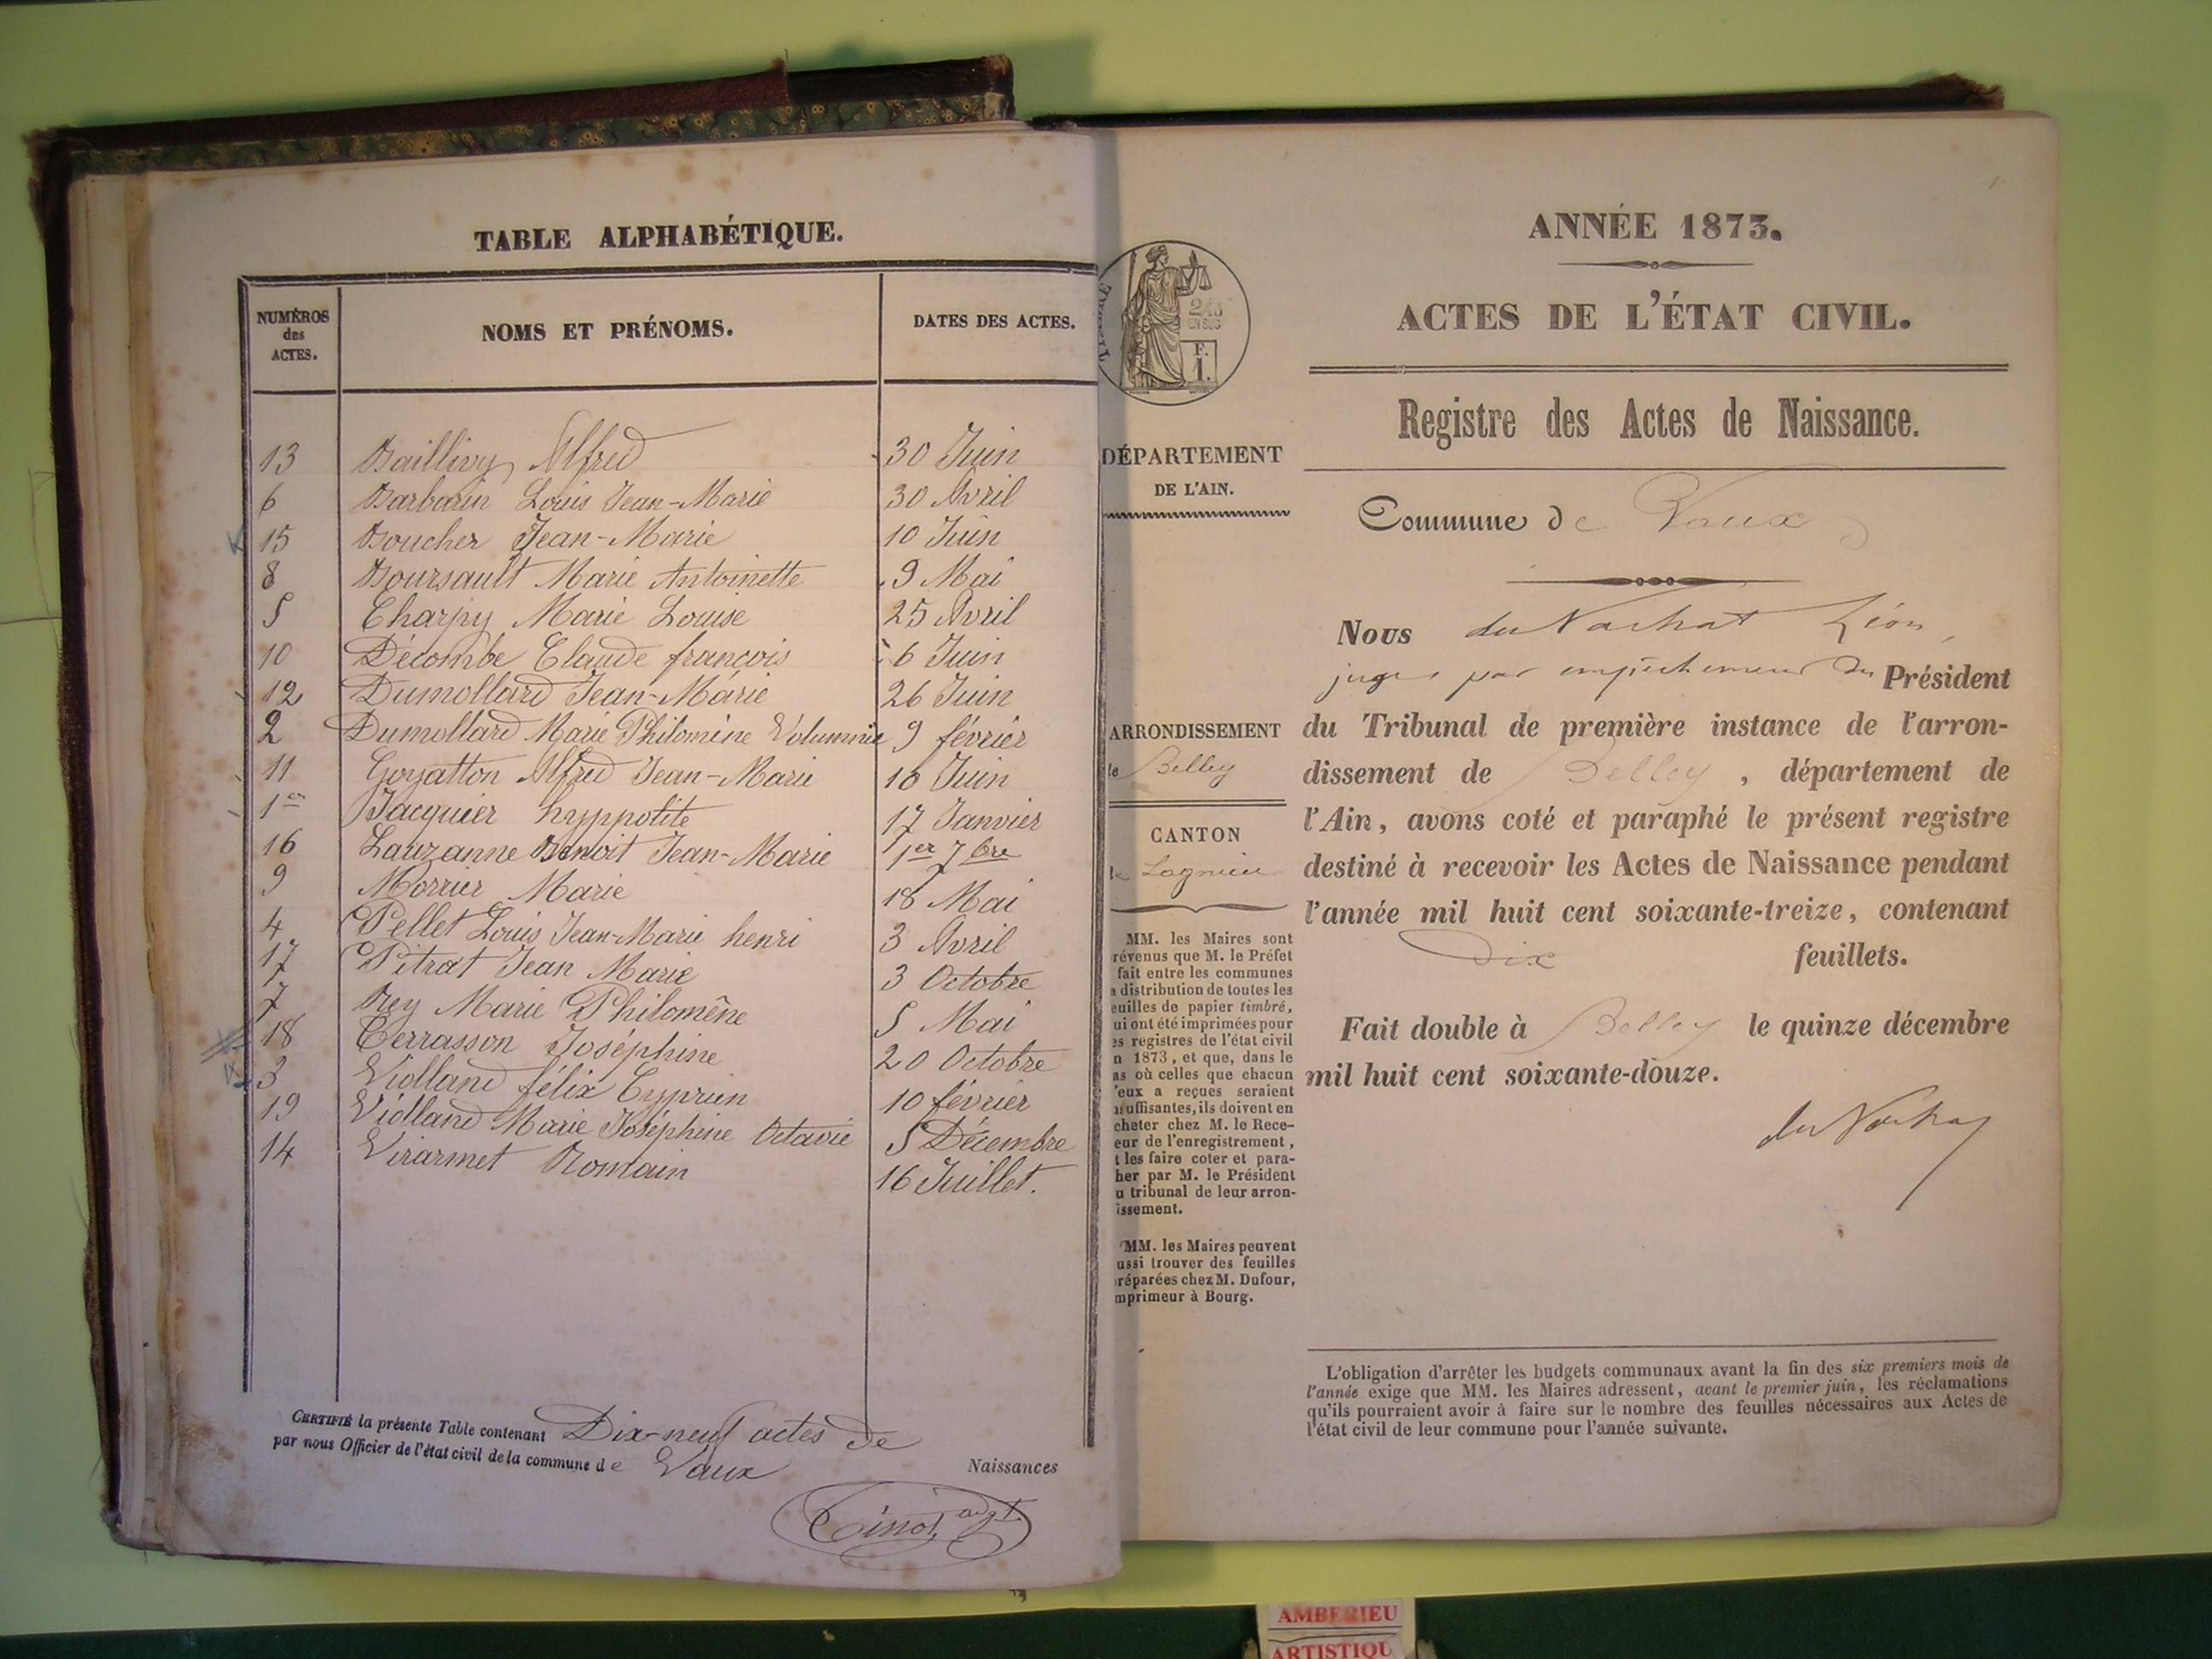 TABLE ALPHABÉTIQUE.
NUMÉROS des ACTES. NOMS ET PRÉNOMS. DATES DES ACTES.
13 Baillivy Alfred 30 Juin
6 Barbarin Louis Jean-Marie 30 Avril
15 Boucher Jean-Marie 10 Juin
8 Boursault Marie Antoinette 9 Mai
5 Charpy Marie Louise 25 Avril
10 Décombe Claude françois 6 Juin
12 Dumollard Jean-Marie 26 Juin
2 Dumollard Marie Philomène 9 février
11 Goyatton Alfred Jean-Marie 16 Juin
1er Jacquier hyppolite 17 Janvier
16 Lauzanne Benoit Jean-Marie 1er 7bre
9 Morrier Marie 18 Mai
4 Pellet Louis Jean-Marie henri 3 Avril
17 Pitrat Jean Marie 3 Octobre
7 Rey Marie Philomêne 5 Mai
18 Terrasson Joséphine 20 Octobre
3 Violland félix Cyprien 10 février
19 Violland Marie Joséphine Octavie 5 Décembre
14 Virarmet Romain 16 Juillet.
CERTIFIÉ la présente Table contenant Dix-neuf actes de
Naissances
par nous Officier de l'état civil de la commune de Vaux
F.
1.
DÉPARTEMENT
DE L'AIN.
ARRONDISSEMENT
Belley
CANTON
Lagnieu
MM. les Maires sont
révenus que M. le Préfet
fait entre les communes
a distribution de toutes les
euilles de papier timbré,
ui ont été imprimées pour
es registres de l'état civil
n 1873, et que, dans le
as où celles que chacun
'eux a reçues seraient
suffisantes, ils doivent en
cheter chez M. le Rece-
eur de l'enregistrement,
t les faire coter et para-
her par M. le Président
u tribunal de leur arron-
issement.
MM. les Maires peuvent
ussi trouver des feuilles
réparées chez M. Dufour,
mprimeur à Bourg.
ANNÉE 1873.
ACTES DE L'ÉTAT CIVIL.
Registre des Actes de Naissance.
Commune de Vaux
Nous du Nachat Léon,
juge par empêchement du Président
du Tribunal de première instance de l'arron-
dissement de Belley, département de
l'Ain, avons coté et paraphé le présent registre
destiné à recevoir les Actes de Naissance pendant
l'année mil huit cent soixante-treize, contenant
Dix feuillets.
Fait double à Belley le quinze décembre
mil huit cent soixante-douze.
du Nachat
L'obligation d'arrêter les budgets communaux avant la fin des six premiers mois de
l'année exige que MM. les Maires adressent, avant le premier juin, les réclamations
qu'ils pourraient avoir à faire sur le nombre des feuilles nécessaires aux Actes de
l'état civil de leur commune pour l'année suivante.
AMBERIEU
ARTISTIQU